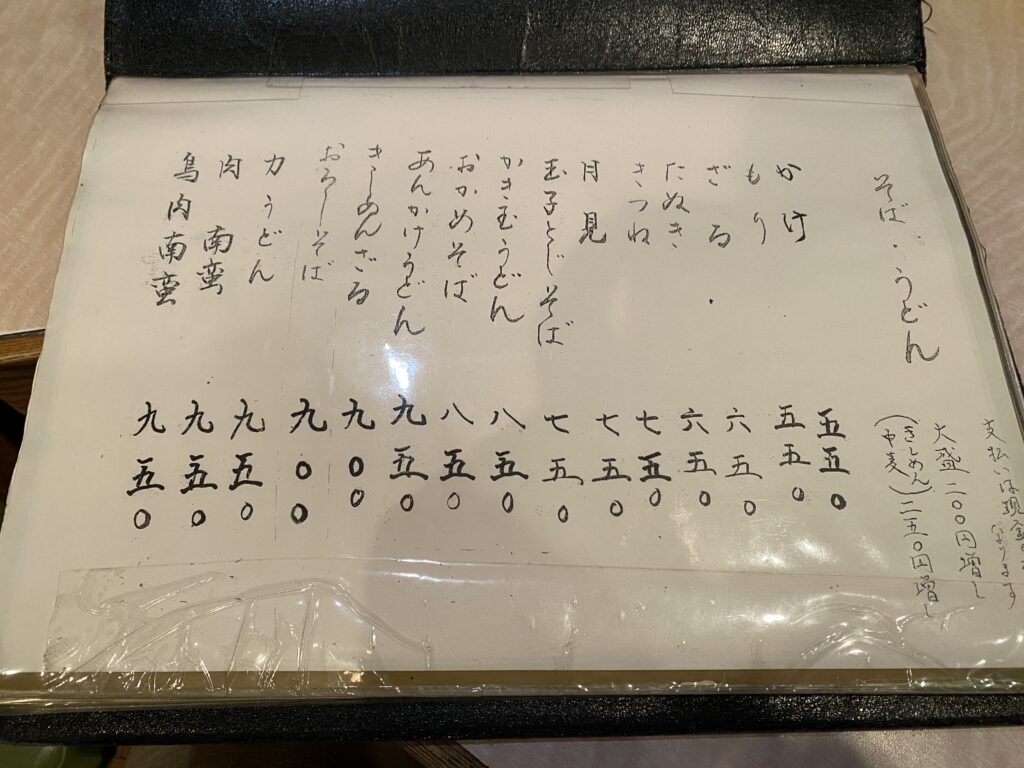 そば・うどん
支払いは現金
なります
大盛二〇〇円増し
(きしめん
中麦)二五〇円増し
かけ 五五〇
もり 五五〇
ざる 六五〇
たぬき 六五〇
きつね 七五〇
月見 七五〇
玉子とじそば 七五〇
かき玉うどん 八五〇
おかめそば 八五〇
あんかけうどん 九五〇
きしめんざる 九〇〇
おろしそば 九〇〇
力うどん 九五〇
肉南蛮 九五〇
鳥肉南蛮 九五〇